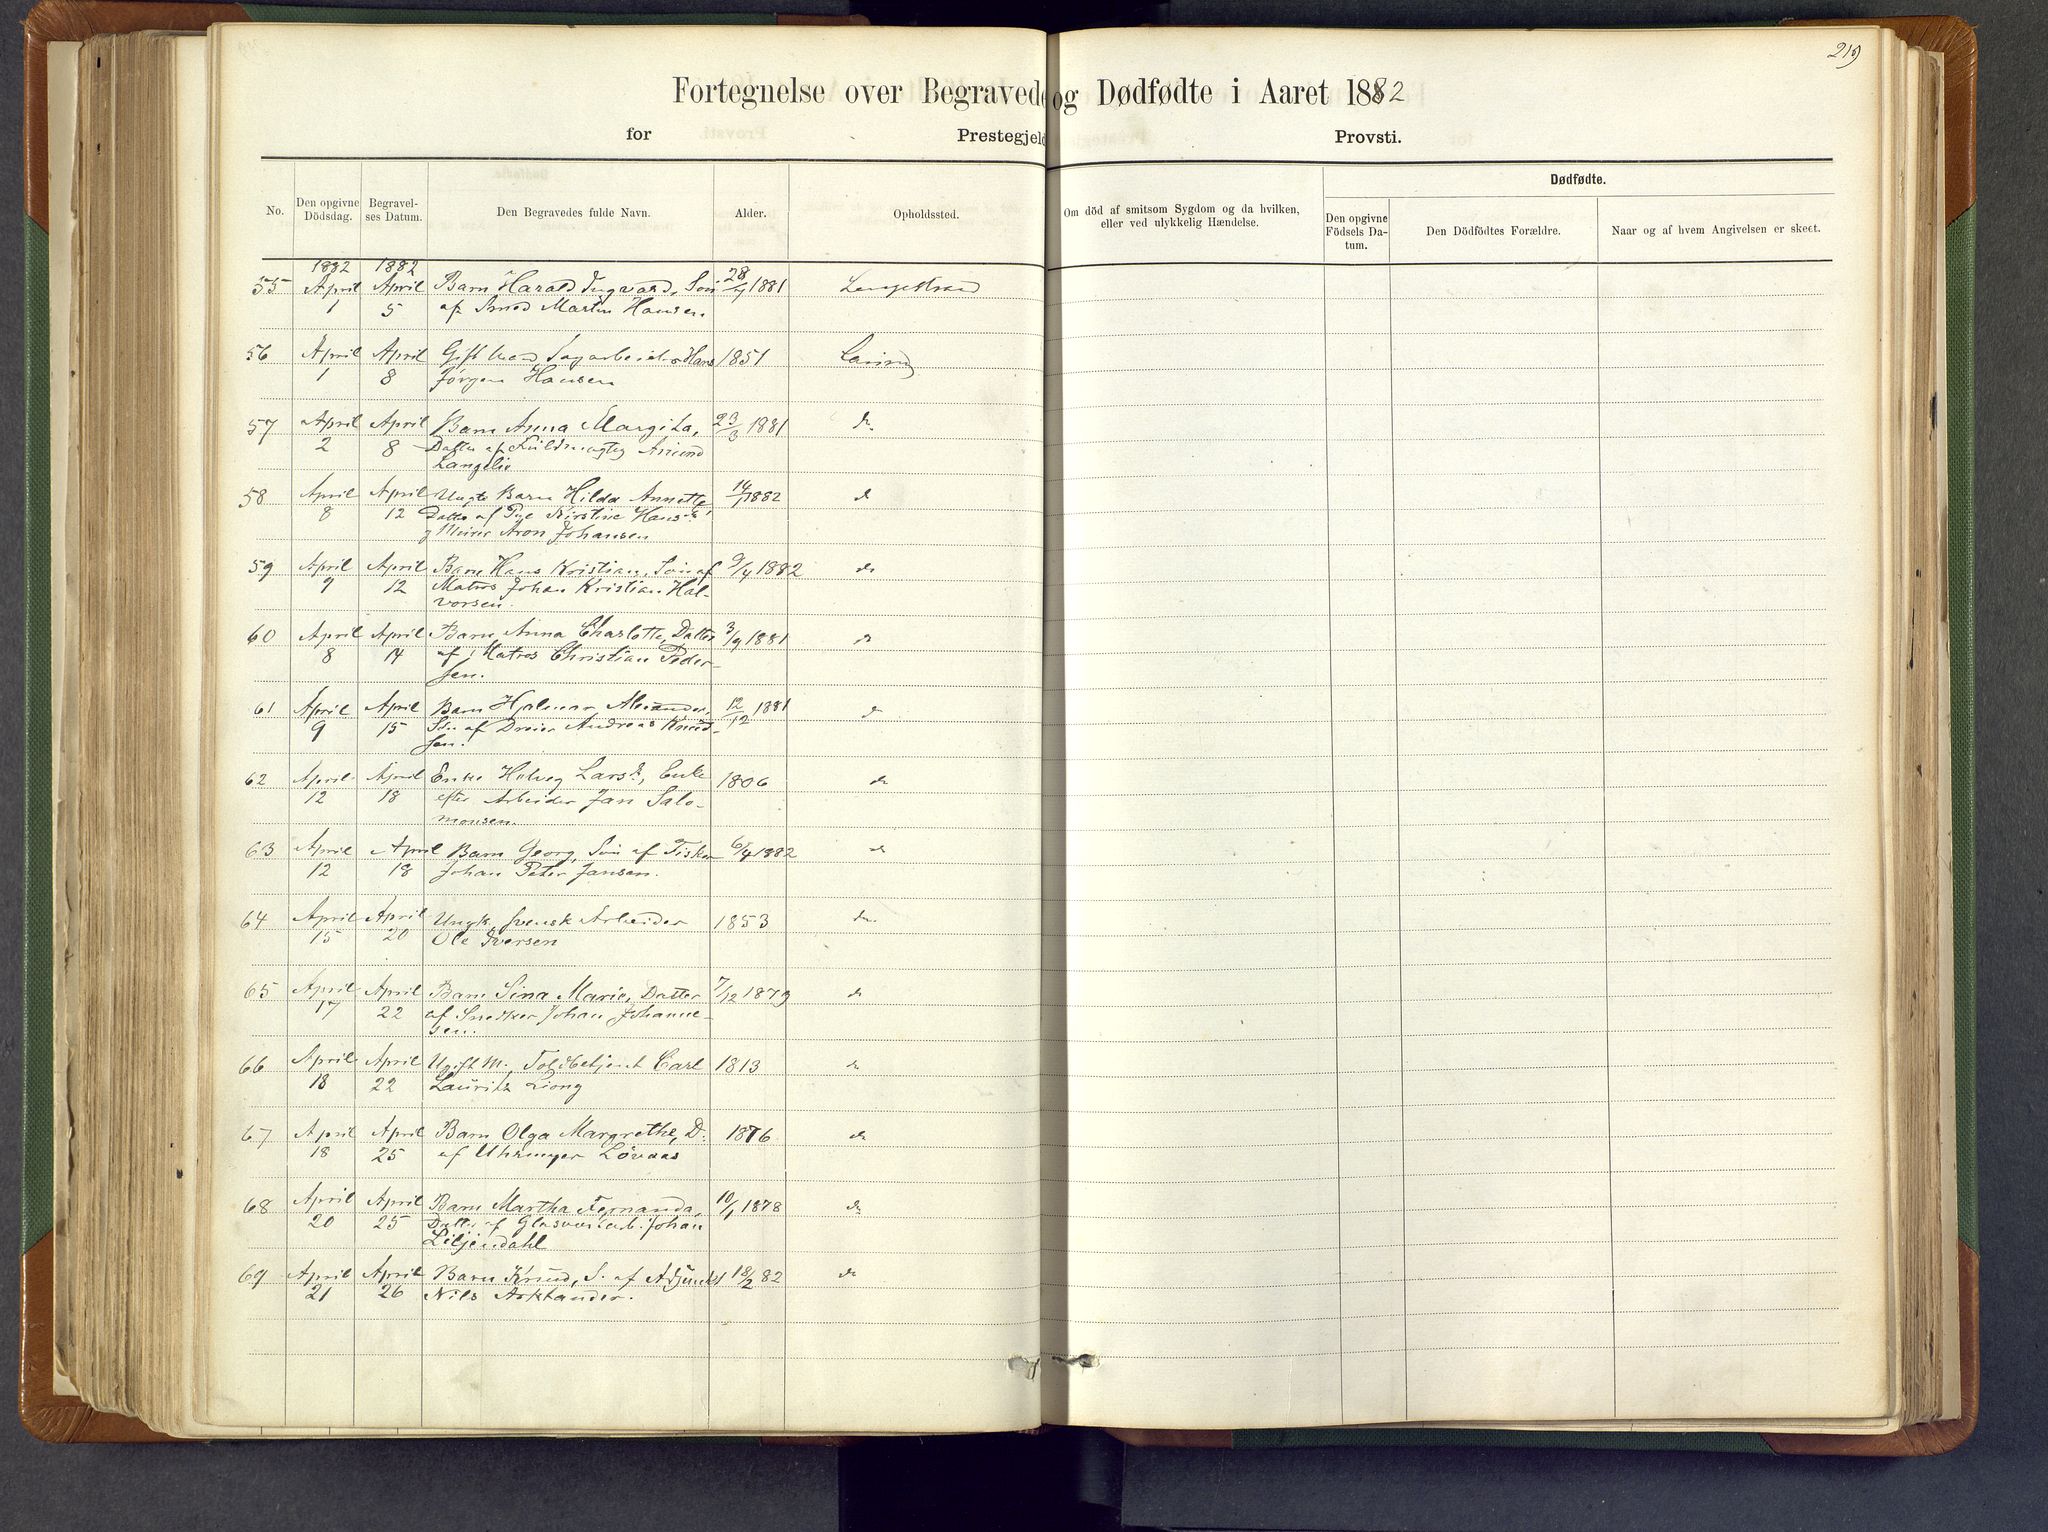 219
Fortegnelse over Begravede og Dødfødte i Aaret 1882
for Prestegjeld Provsti.
No. Den opgivne Dödsdag. Begravelses Datum. Den Begravedes fulde Navn. Alder. Opholdssted. Om död af smitsom Sygdom og da hvilken, eller ved ulykkelig Hændelse. Dødfødte. Den opgivne Födsels Datum. Den Dödfödtes Forældre. Naar og af hvem Angivelsen er skeet.
1882 1882
55 April April Barn Harald Ingvard, Sön 28/ 1881 Langestrand
1 5 af Smed Martin Hansen
56 April April Gift Mand Sagarbeider Hans 1851 Laurvig
1 8 Jørgen Hansen
57 April April Barn Anna Margita, 23/3 1881 do
2 8 Datter af Fuldmægtig Amund
Langelie
58 April April Uægte Barn Hilda Annette, 14/1 1882 do
8 12 Datter af Pige Kirstine Hans
og Murer Aron Johansen
59 April April Barn Hans Kristian, Sön af 9/4 1882 do
9 12 Matros Johan Kristian Hal-
vorsen.
60 April April Barn Anna Charlotte, Datter 3/9 1881 do
8 14 af Matros Christian Peder-
sen.
61 April April Barn Hjalmar Alexander, 12/12 1881 do
9 15 Sön af Dreier Andreas Knud-
sen.
62 April April Enke Helveg Lars, Enke 1806 do
12 18 efter Arbeider Jan Salo-
monsen.
63 April April Barn Georg, Sön af Fisker 6/4 1882 do
12 18 Johan Peter Jansen.
64 April April Ungk. svensk Arbeider 1853 do
15 20 Ole Iversen
65 April April Barn Sina Marie, Datter 7/12 1879 do
17 22 af Snedker Johan Johanne-
sen.
66 April April Ugift M., Toldbetjent Carl 1813 do
18 22 Lauritz Ziong
67 April April Barn Olga Margrethe, D. 1876 do
18 25 af Uhrmager Lövaas
68 April April Barn Martha Fernanda, 10/1 1878 do
20 25 Datter af Glasværkarb. Johan
Liljendahl
69 April April Barn Knud, S. af Adjunkt 18/2 82 do
21 26 Nils Arktander.